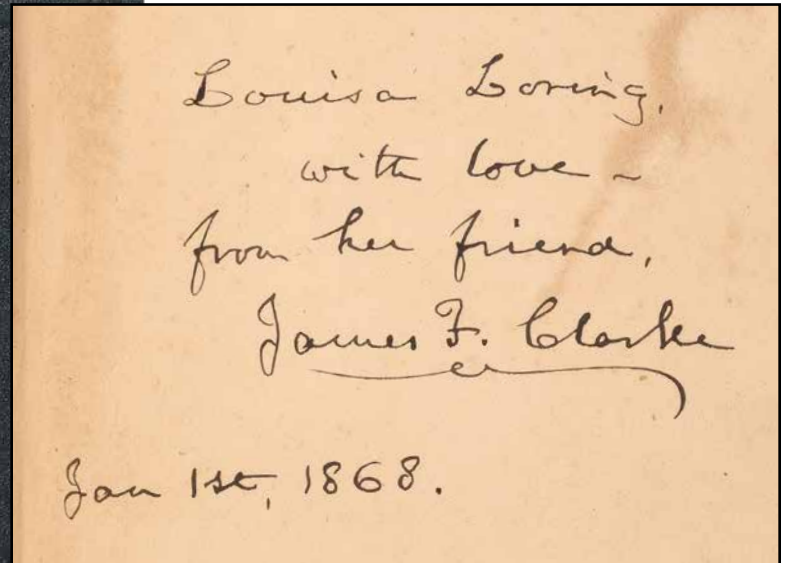 Louisa Loring,
with love –
from her friend,
James F. Clarke
Jan 1st, 1868.